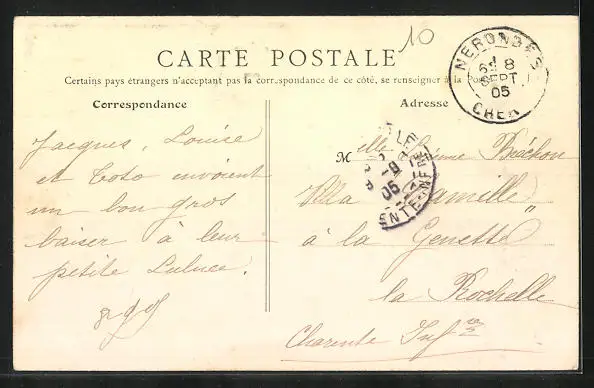 10
CARTE POSTALE
Certains pays étrangers n'acceptant pas la correspondance de ce côté, se renseigner à la Poste
Correspondance
Adresse
NERONDES
8
SEPT
05
CHER
Jacques, Louise
et Toto envoient
un bon gros
baiser à leur
petite Luluce.
Melle Bréchon
Villa "Camille"
à la Genette
la Rochelle
Charente Infre